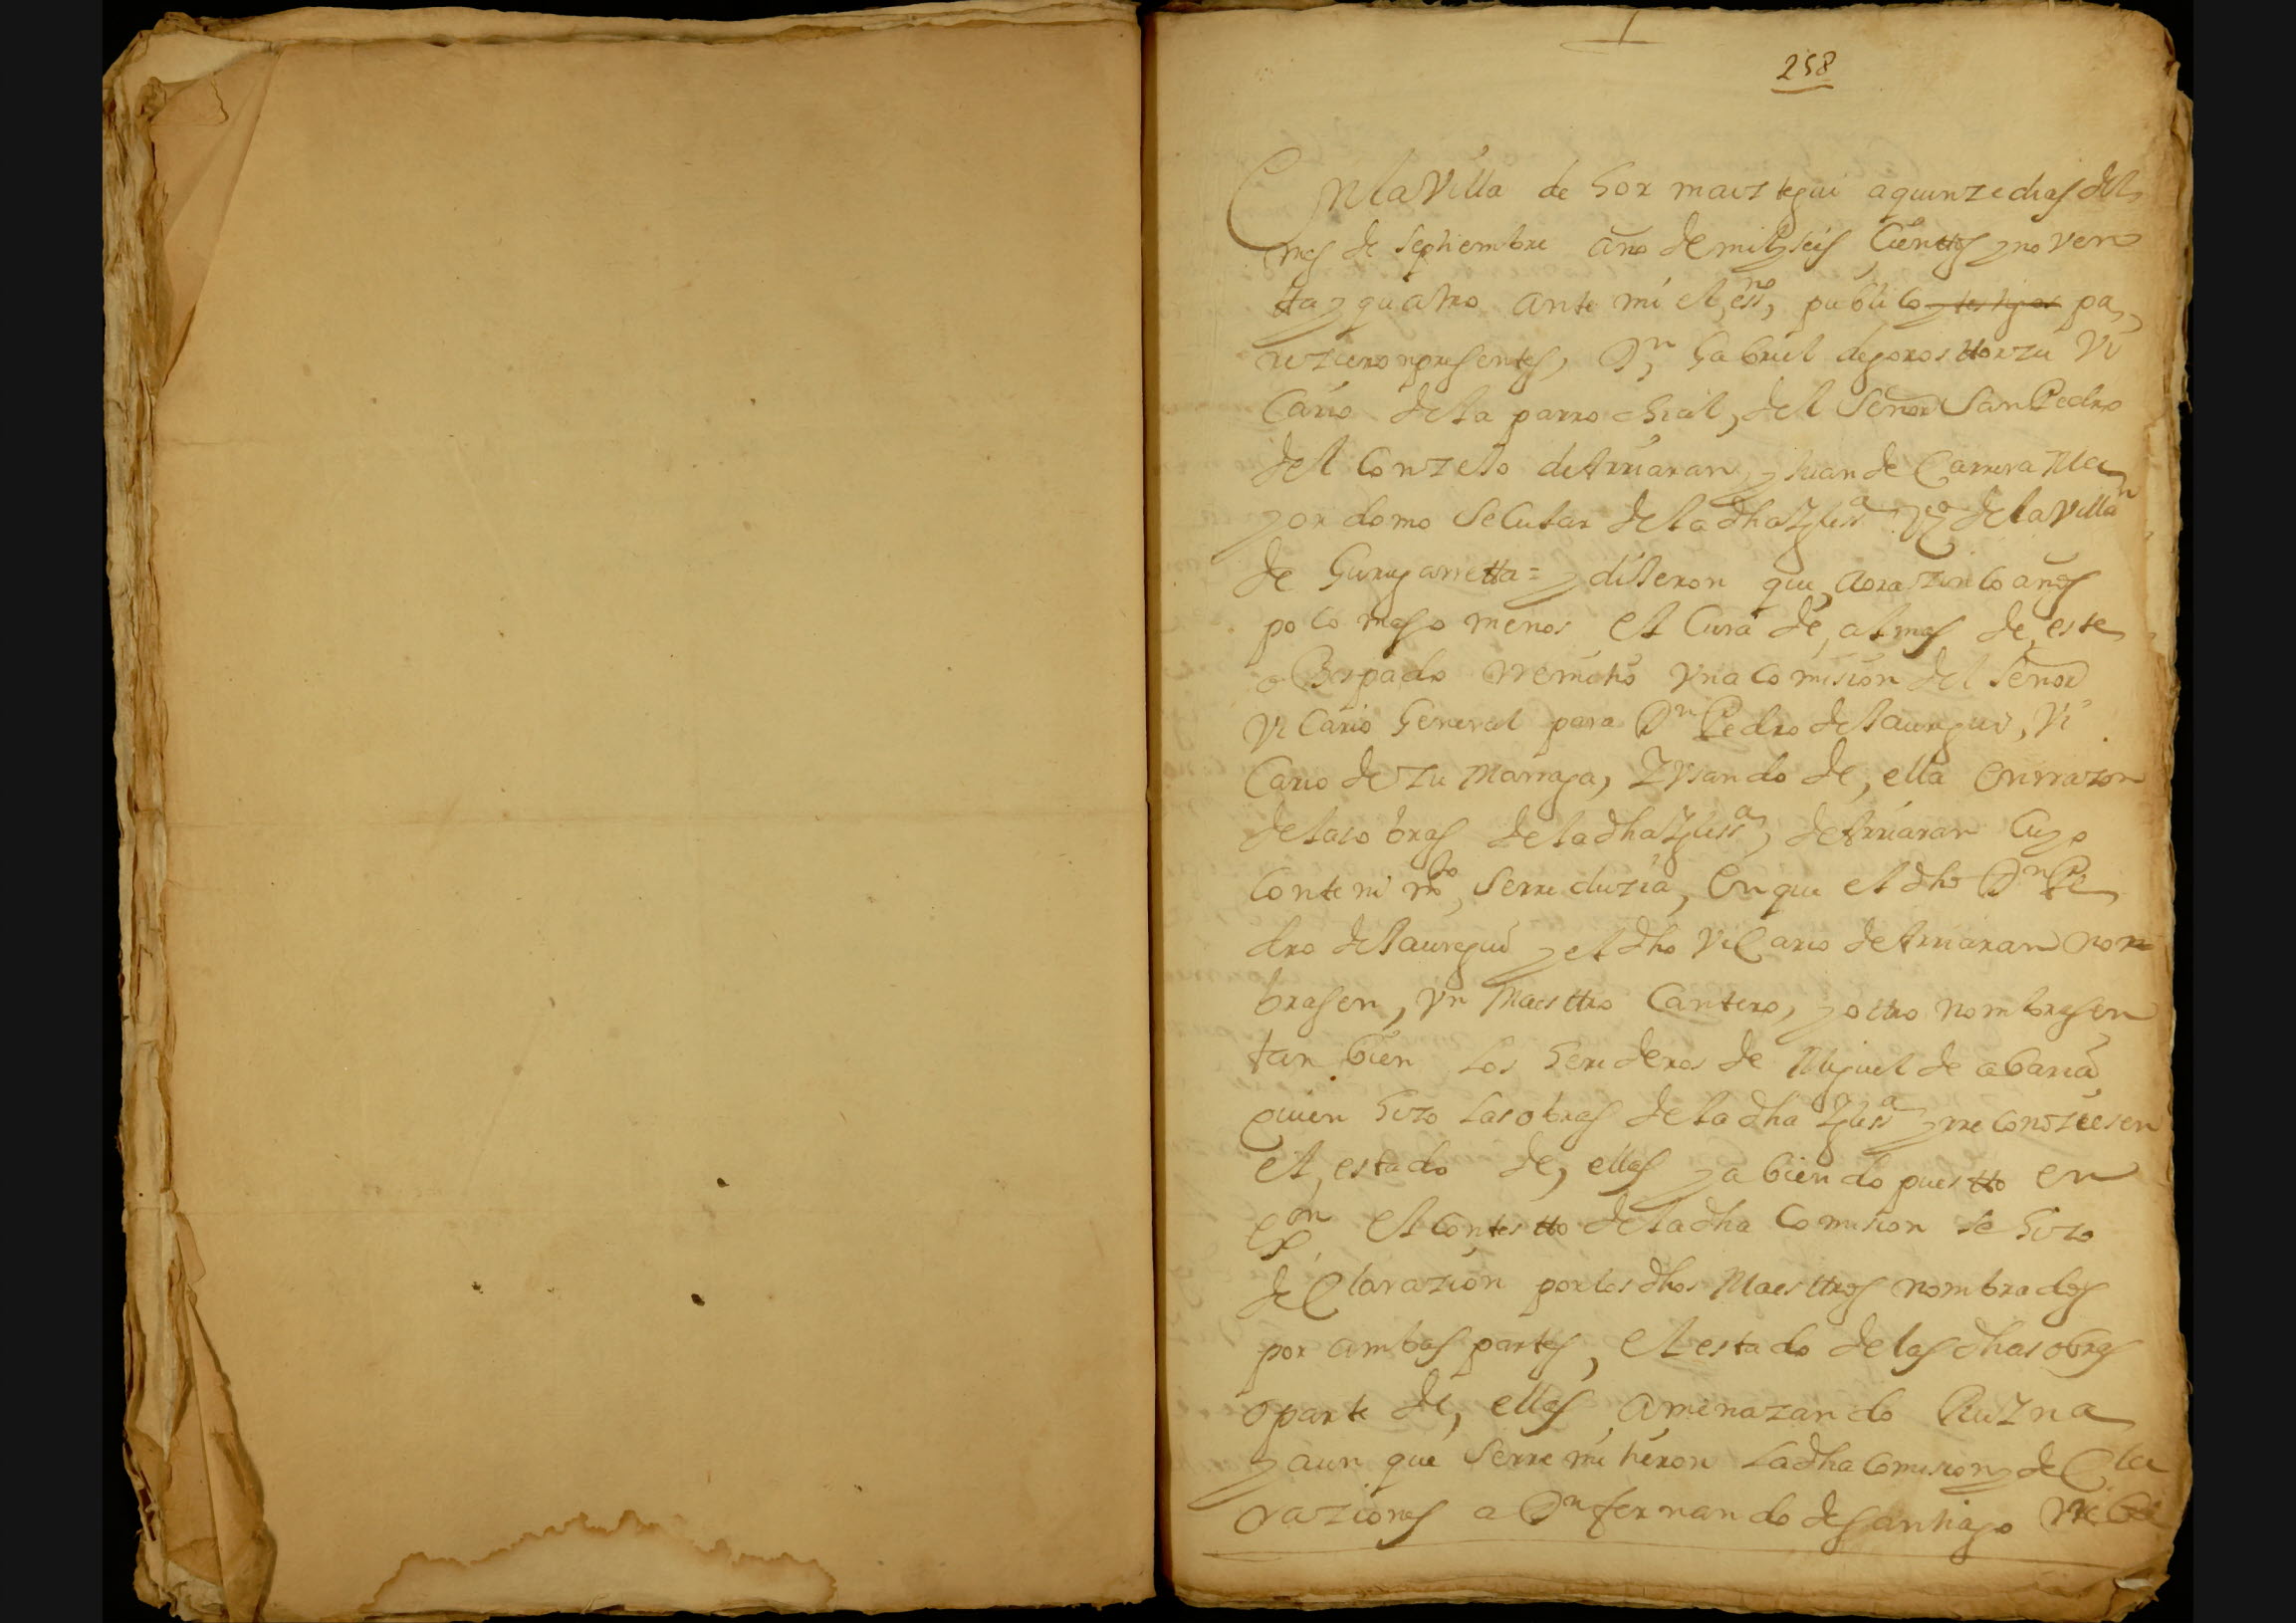 258
En la Villa de hormaiztegui a quinze dias del
mes de septiembre año de mil y seis Cienttos y noven
tta y quatro ante mi el essno publico y testigos pa
rezieron presentes, Dn Gabriel de goros ttorzu Vi
Cario de la parrochial, del Señor San Pedro
del Conzejo de Arriaran, y Juan de Carrera Ma
yordomo Secular de la dha Yglessa Vº de la Villa
de Gurrgarretta = y dijeron que, aora zinco años
poco mas o menos el Cura de, almas de, este
oBispado rremitio Vna Comision del Señor
Vicario General para Dn Pedro de Jauregui, Vi
Cario de Zumarraga, Y Vsando de, ella en rrazon
de las obras de la dha Yglessa, de Arriaran Cuyo
Contenimto, se rreduzia, en que el dho Dn Pe
dro de Jauregui y el dho Vicario de Arriaran nom
brasen, Vn Maesttro Cantero, y ottro nombrasen
tan bien Los herederos de Miguel de abaria
quien hizo las obras de la dha Yglessa y rreconoziesen
el, estado de, ellas y abiendo puestto en
exon el Contestto de la dha Comision se hizo
deClarazion por los dhos Maesttros nombrados
por ambas partes, el estado de las dhas obras
o parte de, ellas amenazando Ruyna
y aun que se rremitieron la dha Comision y deCla
raziones a Dn fernando de santiago